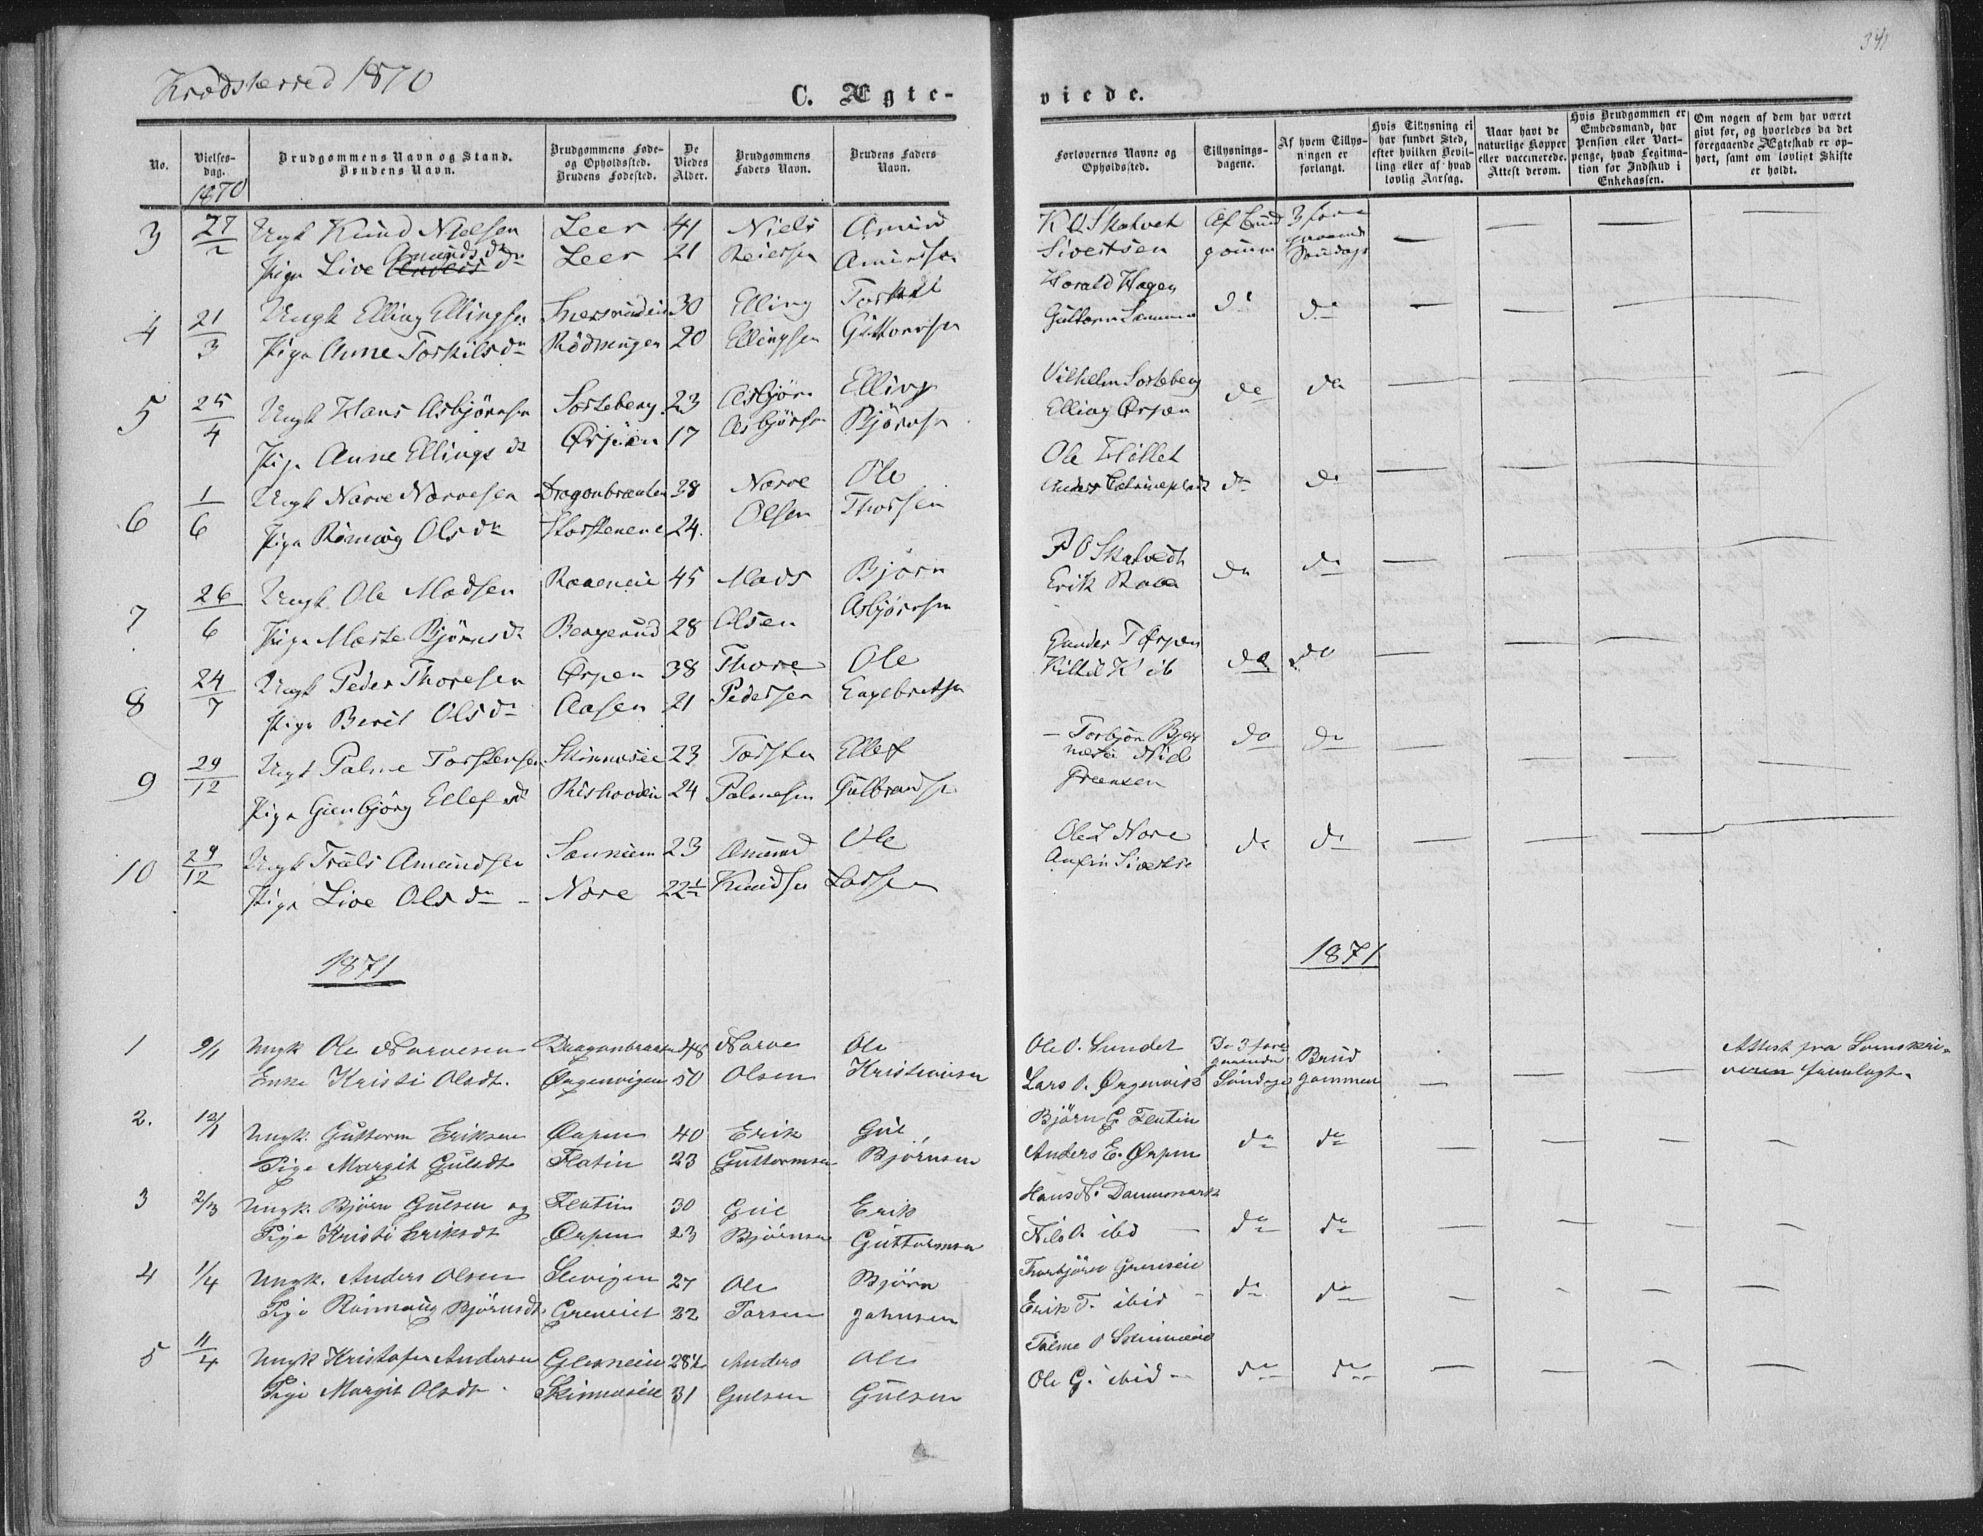 Krødsherred 1870
341
C. Ægte-
viede.
No.
Vielses-dag.
Brudgommens Navn og Stand. Brudens Navn.
Brudgommens Føde- og Opholdssted. Brudens Fødested.
De Viedes Alder.
Brudgommens Faders Navn.
Brudens Faders Navn.
Forlovernes Navne og Opholdssted.
Tillysnings-dagene.
Af hvem Tillysningen er forlangt.
Hvis Tillysning ei har fundet Sted, efter hvilken Bevilling eller af hvad lovlig Aarsag.
Naar havt de naturlige Kopper eller vaccinerede. Attest derom.
Hvis Brudgommen er Embedsmand, har Pension eller Vartpenge, hvad Legitimation for Indskud i Enkekassen.
Om nogen af dem har været givt før, og hvorledes da det foregaaende Ægteskab er ophørt, samt om lovligt Skifte er holdt.
1870
3 27/2 Ungk Knud Nielsen Leer 41 Niels Amund K O Skalvet Af Brud 3 fore
Pige Live Amundsdn Leer 21 Reiersen Amundsen Sivertsen gomm gaaende Søndage
4 21/3 Ungk Elling Ellingsen 30 Elling Torkel Harald Hagen do do
Pige Anne Torkilsdn Rødningen 20 Ellingsen Guttormsen Guttorm
5 25/4 Ungk Hans Asbjørnsen Sorteberg 23 Asbjørn Elling Vilhelm Sorteberg do do
Pige Anne Ellingsdt Ørpen 17 Asbjørnsen Bjørnsen Elling Ørpen
6 1/6 Ungk Narve Narvesen Dragonbraaten 28 Narve Ole Ole Høllet do do
Pige Rønnog Olsdn 24. Olsen Thorsen Anders
7 26/6 Ungk Ole Madsen 45 Mads Bjørn P O Skalvedt do do
Pige Marte Bjørnsdt Bergerud 28 Olsen Asbjørnsen Erik
8 24/7 Ungk Peder Thoresen Ørpen 38 Thore Ole Gunder T Ørpen do do
Pige Berit Olsdn Aasen 21 Pedersen Engebretsen Kittil K ib
9 29/12 Ungk Palme Torstensen Skinneseie 23 Torsten Ellef Torbjørn do do
Pige Gienbjørg Ellefsdt Rishovdeie 24 Palmesen Gulbrandsen
10 29/12 Ungk Truls Amundsen 23 Amund Ole Ole L Nore do do
Pige Live Olsdn Nore 22½ Knudsen Larsen Anfin Sivertsen
1871
1871
1 9/1 Ungk Ole Narvesen Dragonbraaten 48 Narve Ole Ole O. Sundet De 3 fore Brud Attest fra Sorenskri-
Enke Kristi Olsdt. Ørgenvigen 50 Olsen Kristiansen Lars O. Ørgenvik gaaende Søndage gommen veren fremlagt.
2. 12/1 Ungk. Guttorm Eriksen Ørpen 40 Erik Gul Bjørn G. do do
Pige Margit Gulsdt 23 Guttormsen Bjørnsen Anders E. Ørpen
3 2/3 Ungk. Bjørn Gulsen og 30 Gul Erik Hans N. Dannemark do do
Pige Kristi Eriksdt Ørpen 23 Bjørnsen Guttormsen Nils O. ibd
4 1/4 Ungk. Anders Olsen Slevigen 27 Ole Bjørn Thorbjørn do do
Pige Rønnaug Bjørnsdt. 22 Torsen Johnsen Erik T. ibid
5 11/4 Ungk Kristofer Andersen Glesneeie 28½ Anders Ole Palme O Skinneseie do do
Pige Margit Olsdt. Skinneseie 31 Gulsen Gulsen Ole G. ibid